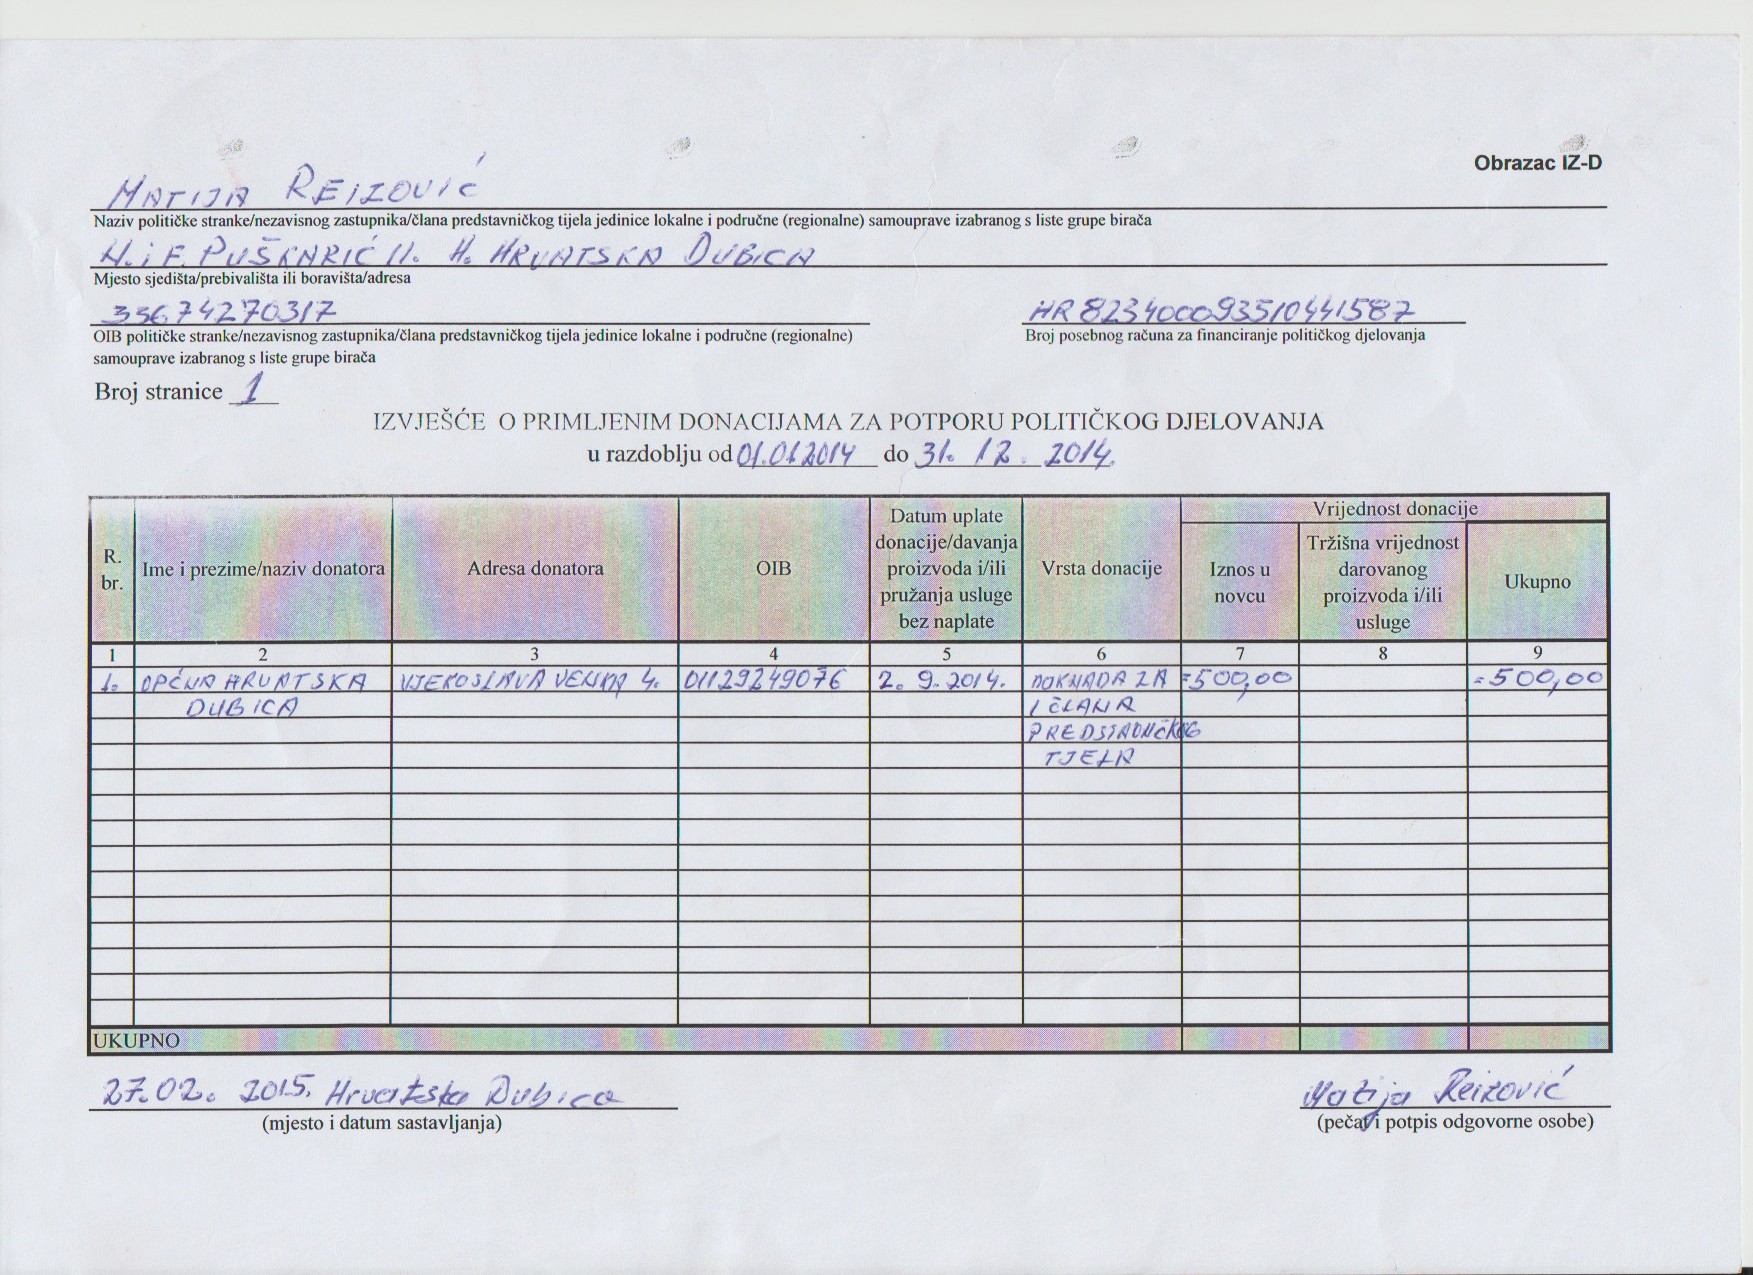 Obrazac IZ-D
MATIJA REIZOVIĆ
Naziv političke stranke/nezavisnog zastupnika/člana predstavničkog tijela jedinice lokalne i područne (regionalne) samouprave izabranog s liste grupe birača
F. PUŠKARIĆ 11. H. HRVATSKA DUBICA
Mjesto sjedišta/prebivališta ili boravišta/adresa
33674270317 HR823400093510441587
OIB političke stranke/nezavisnog zastupnika/člana predstavničkog tijela jedinice lokalne i područne (regionalne) Broj posebnog računa za financiranje političkog djelovanja
samouprave izabranog s liste grupe birača
Broj stranice 1
IZVJEŠĆE O PRIMLJENIM DONACIJAMA ZA POTPORU POLITIČKOG DJELOVANJA
u razdoblju od 01.01.2014 do 31. 12. 2014.
R. br.
Ime i prezime/naziv donatora
Adresa donatora
OIB
Datum uplate
donacije/davanja
proizvoda i/ili
pružanja usluge
bez naplate
Vrsta donacije
Vrijednost donacije
Iznos u
novcu
Tržišna vrijednost
darovanog
proizvoda i/ili
usluge
Ukupno
1 2 3 4 5 6 7 8 9
1. OPĆINA HRVATSKA VJEKOSLAVA VENKA 4. 01129249076 2. 9. 2014. NOKNADA ZA =500,00 =500,00
DUBICA 1 ČLANA
PREDSTAVNIČKOG
TJELA
UKUPNO
27.02. 2015. Hrvatska Dubica Matija Reizović
(mjesto i datum sastavljanja) (pečat i potpis odgovorne osobe)